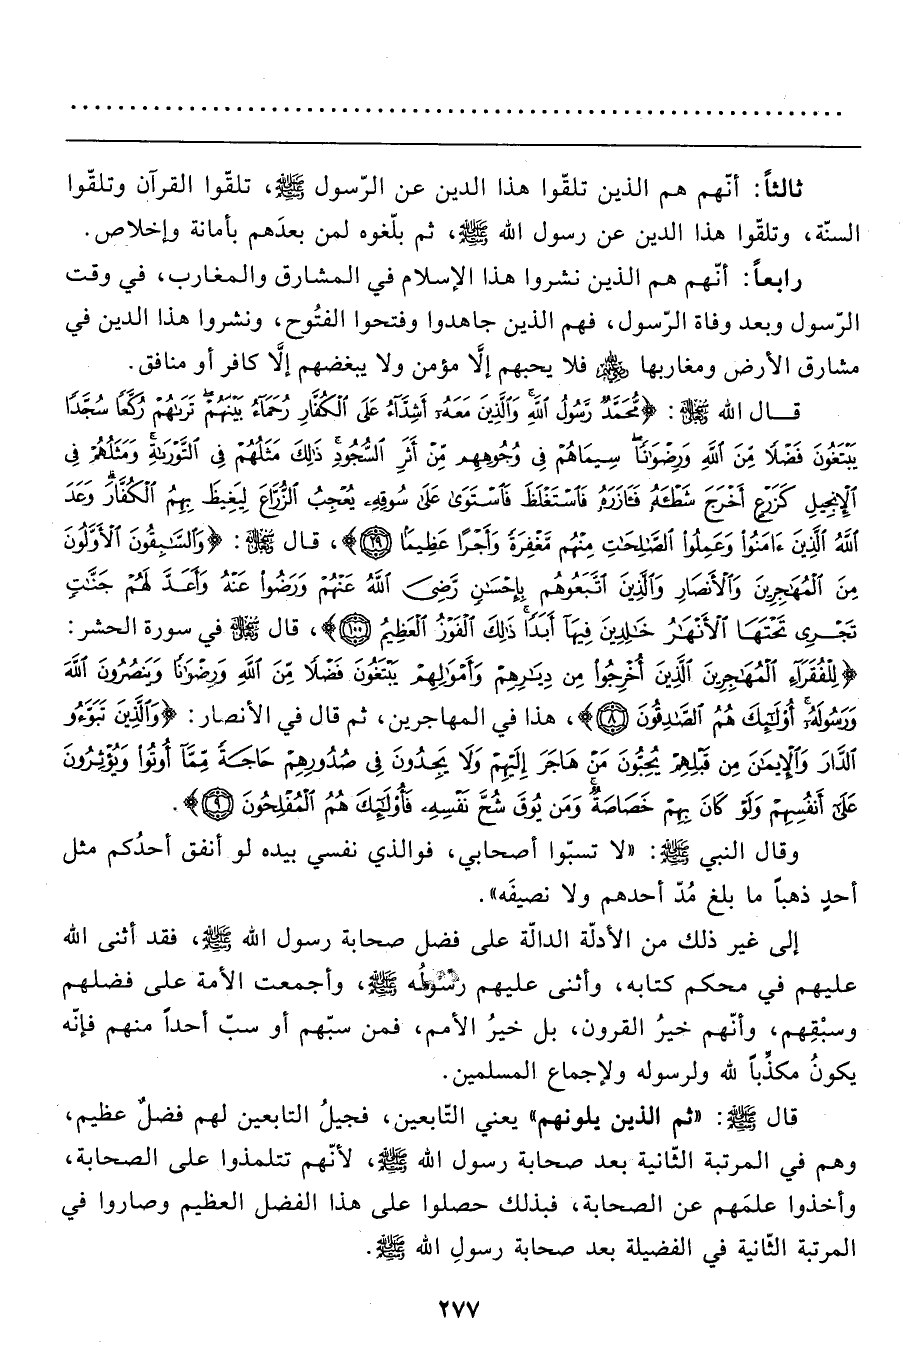 ثالثاً: أنّهم هم الذين تلقّوا هذا الدين عن الرّسول ﷺ، تلقّوا القرآن وتلقّوا
السنّة، وتلقّوا هذا الدين عن رسول الله ﷺ، ثم بلّغوه لمن بعدَهم بأمانة وإخلاص.
رابعاً: أنّهم هم الذين نشروا هذا الإسلام في المشارق والمغارب، في وقت
الرّسول وبعد وفاة الرّسول، فهم الذين جاهدوا وفتحوا الفتُوح، ونشروا هذا الدين في
مشارق الأرض ومغاربها ﵃ فلا يحبهم إلَّا مؤمن ولا يبغضهم إلَّا كافر أو منافق.
قال الله ﷻ: ﴿مُّحَمَّدٌ رَّسُولُ ٱللَّهِۚ وَٱلَّذِينَ مَعَهُۥٓ أَشِدَّآءُ عَلَى ٱلۡكُفَّارِ رُحَمَآءُ بَيۡنَهُمۡۖ تَرَىٰهُمۡ رُكَّعٗا سُجَّدٗا
يَبۡتَغُونَ فَضۡلٗا مِّنَ ٱللَّهِ وَرِضۡوَٰنٗاۖ سِيمَاهُمۡ فِي وُجُوهِهِم مِّنۡ أَثَرِ ٱلسُّجُودِۚ ذَٰلِكَ مَثَلُهُمۡ فِي ٱلتَّوۡرَىٰةِۚ وَمَثَلُهُمۡ فِي
ٱلۡإِنجِيلِ كَزَرۡعٍ أَخۡرَجَ شَطۡـَٔهُۥ فَـَٔازَرَهُۥ فَٱسۡتَغۡلَظَ فَٱسۡتَوَىٰ عَلَىٰ سُوقِهِۦ يُعۡجِبُ ٱلزُّرَّاعَ لِيَغِيظَ بِهِمُ ٱلۡكُفَّارَۗ وَعَدَ
ٱللَّهُ ٱلَّذِينَ ءَامَنُواْ وَعَمِلُواْ ٱلصَّٰلِحَٰتِ مِنۡهُم مَّغۡفِرَةٗ وَأَجۡرًا عَظِيمَۢا ٢٩﴾، قال ﷻ: ﴿وَٱلسَّٰبِقُونَ ٱلۡأَوَّلُونَ
مِنَ ٱلۡمُهَٰجِرِينَ وَٱلۡأَنصَارِ وَٱلَّذِينَ ٱتَّبَعُوهُم بِإِحۡسَٰنٖ رَّضِيَ ٱللَّهُ عَنۡهُمۡ وَرَضُواْ عَنۡهُ وَأَعَدَّ لَهُمۡ جَنَّٰتٖ
تَجۡرِي تَحۡتَهَا ٱلۡأَنۡهَٰرُ خَٰلِدِينَ فِيهَآ أَبَدٗاۚ ذَٰلِكَ ٱلۡفَوۡزُ ٱلۡعَظِيمُ ١٠٠﴾، قال ﷻ في سورة الحشر:
﴿لِلۡفُقَرَآءِ ٱلۡمُهَٰجِرِينَ ٱلَّذِينَ أُخۡرِجُواْ مِن دِيَٰرِهِمۡ وَأَمۡوَٰلِهِمۡ يَبۡتَغُونَ فَضۡلٗا مِّنَ ٱللَّهِ وَرِضۡوَٰنٗا وَيَنصُرُونَ ٱللَّهَ
وَرَسُولَهُۥٓۚ أُوْلَٰٓئِكَ هُمُ ٱلصَّٰدِقُونَ ٨﴾، هذا في المهاجرين، ثم قال في الأنصار: ﴿وَٱلَّذِينَ تَبَوَّءُو
ٱلدَّارَ وَٱلۡإِيمَٰنَ مِن قَبۡلِهِمۡ يُحِبُّونَ مَنۡ هَاجَرَ إِلَيۡهِمۡ وَلَا يَجِدُونَ فِي صُدُورِهِمۡ حَاجَةٗ مِّمَّآ أُوتُواْ وَيُؤۡثِرُونَ
عَلَىٰٓ أَنفُسِهِمۡ وَلَوۡ كَانَ بِهِمۡ خَصَاصَةٞۚ وَمَن يُوقَ شُحَّ نَفۡسِهِۦ فَأُوْلَٰٓئِكَ هُمُ ٱلۡمُفۡلِحُونَ ٩﴾.
وقال النبي ﷺ: «لا تسبّوا أصحابي، فوالذي نفسي بيده لو أنفق أحدُكم مثل
أحدٍ ذهباً ما بلغ مُدّ أحدهم ولا نصيفَه».
إلى غير ذلك من الأدلّة الدالّة على فضل صحابة رسول الله ﷺ، فقد أثنى الله
عليهم في محكم كتابه، وأثنى عليهم رسولُه ﷺ، وأجمعت الأمة على فضلهم
وسبْقِهم، وأنّهم خيرُ القرون، بل خيرُ الأمم، فمن سبّهم أو سبّ أحداً منهم فإنّه
يكونُ مكذِّباً لله ولرسوله ولإجماع المسلمين.
قال ﷺ: «ثم الذين يلونهم» يعني التّابعين، فجيلُ التابعين لهم فضلٌ عظيم،
وهم في المرتبة الثّانية بعد صحابة رسول الله ﷺ، لأنّهم تتلمذوا على الصحابة،
وأخذوا علمَهم عن الصحابة، فبذلك حصلوا على هذا الفضل العظيم وصاروا في
المرتبة الثّانية في الفضيلة بعد صحابة رسولِ الله ﷺ.
٢٧٧